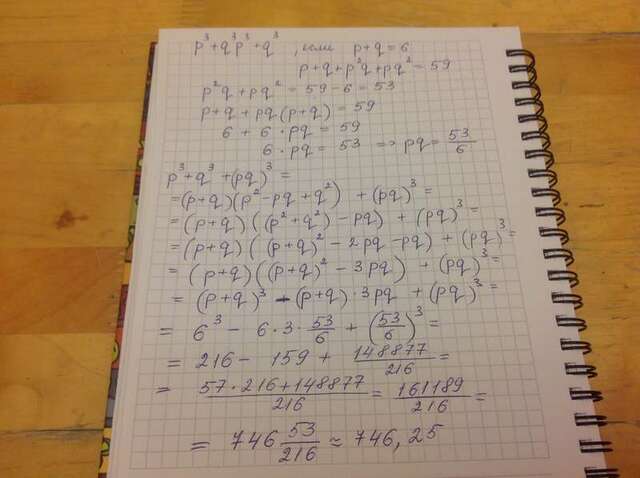 p³+q³p³+q³ , если p+q=6
p+q+p²q+pq²=59
p²q+pq²=59-6=53
p+q+pq(p+q)=59
6+6·pq=59
6·pq=53 => pq=53/6
p³+q³+(pq)³=
=(p+q)(p²-pq+q²)+(pq)³=
=(p+q)((p²+q²)-pq)+(pq)³=
=(p+q)((p+q)²-2pq-pq)+(pq)³=
=(p+q)((p+q)²-3pq)+(pq)³=
=(p+q)³-(p+q)·3pq+(pq)³=
=6³-6·3·53/6+(53/6)³=
=216-159+148877/216=
=57·216+148877/216=161189/216=
=746 53/216≈746,25